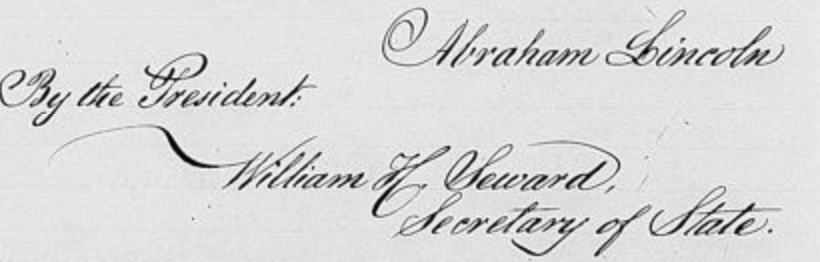 Abraham Lincoln
By the President:
William H. Seward,
Secretary of State.